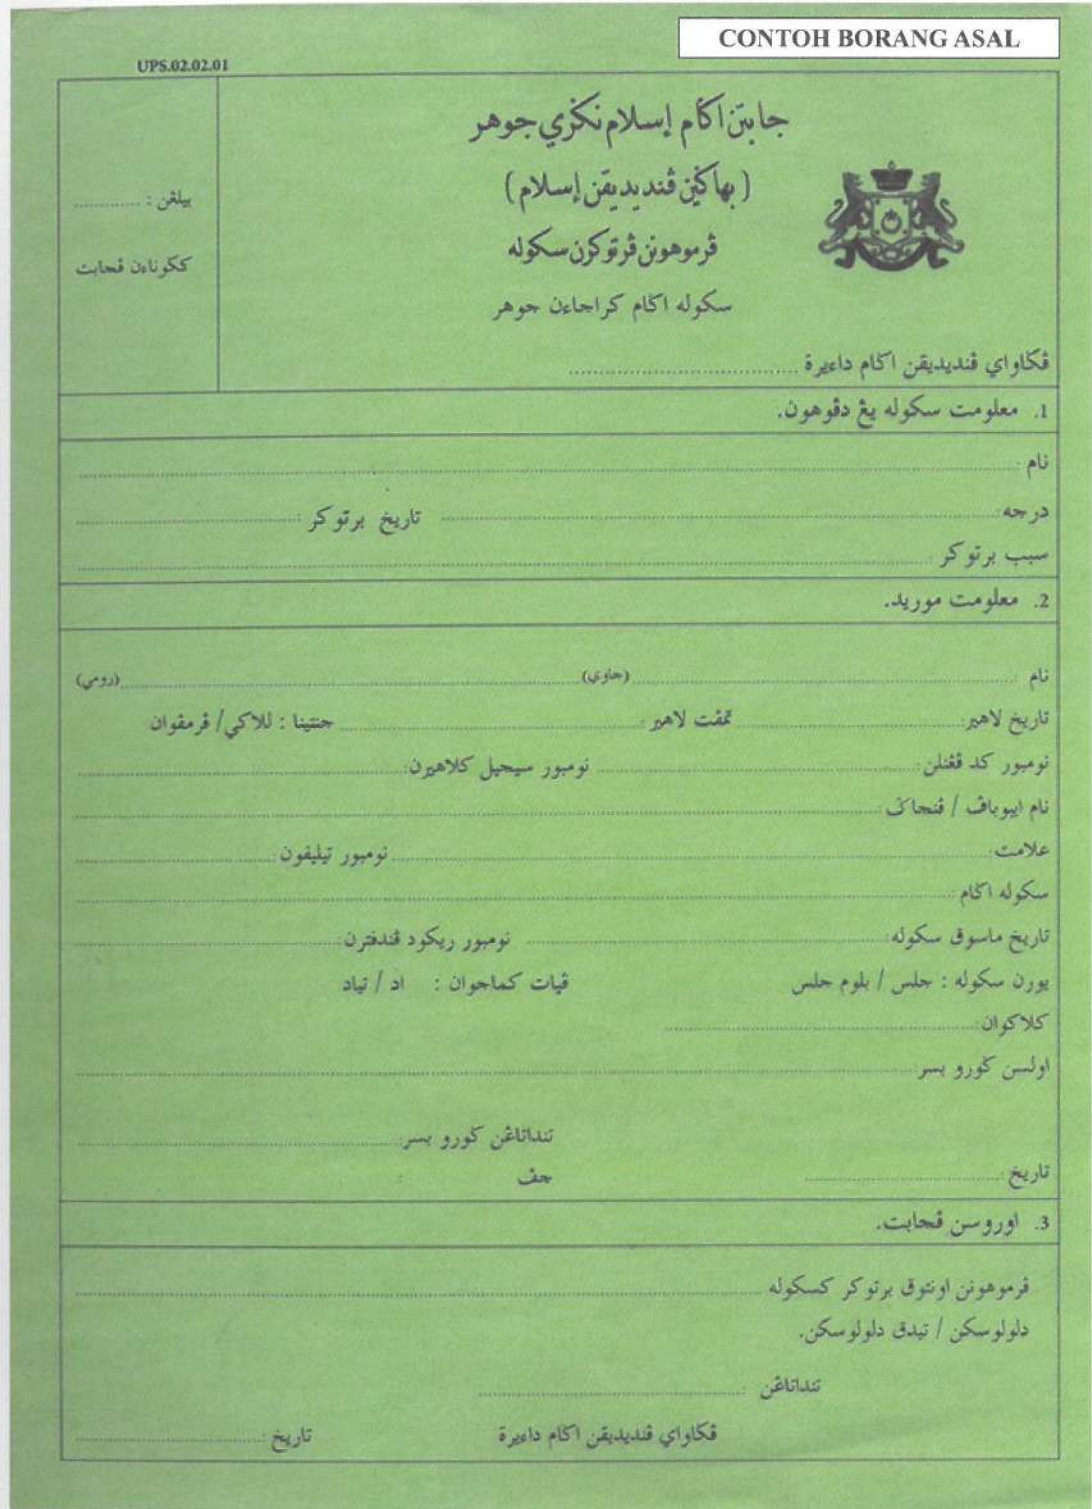 CONTOH BORANG ASAL
UPS.02.02.01
جابتن اݢام إسلام نݢري جوهر
(بهاݢين ڤنديديقن إسلام)
ڤرموهونن ڤرتوكرن سكوله
سكوله اݢام كراجاءن جوهر
بيلڠن : ............
ككوناءن ڤجابت
ڤݢاواي ڤنديديقن اݢام داءيرة ................................
1. معلومت سكوله يڠ دڤوهون.
نام : ................................
درجه: ................................ تاريخ برتوكر : ................................
سبب برتوكر : ................................
2. معلومت موريد.
نام : ................................ (جاوي) ................................ (رومي)
تاريخ لاهير: ................................ تمڤت لاهير : ................................ جنتينا : للاكي/ ڤرمڤوان
نومبور كد ڤڠنلن: ................................ نومبور سيجيل كلاهيرن: ................................
نام ايبوباڤ / ڤنجاݢ: ................................
علامت: ................................ نومبور تيليفون: ................................
سكوله اݢام: ................................
تاريخ ماسوق سكوله: ................................ نومبور ريكود ڤندفترن: ................................
يورن سكوله : جلس / بلوم جلس ڤيات كماجوان : اد / تياد
كلاكوان: ................................
اولسن ݢورو بسر: ................................
تنداتاڠن ݢورو بسر: ................................
تاريخ : ................................ جڤ :
3. اوروسن ڤجابت.
ڤرموهونن اونتوق برتوكر كسكوله ................................
دلولوسكن / تيدق دلولوسكن.
تنداتاڠن : ................................
ڤݢاواي ڤنديديقن اݢام داءيرة تاريخ : ................................